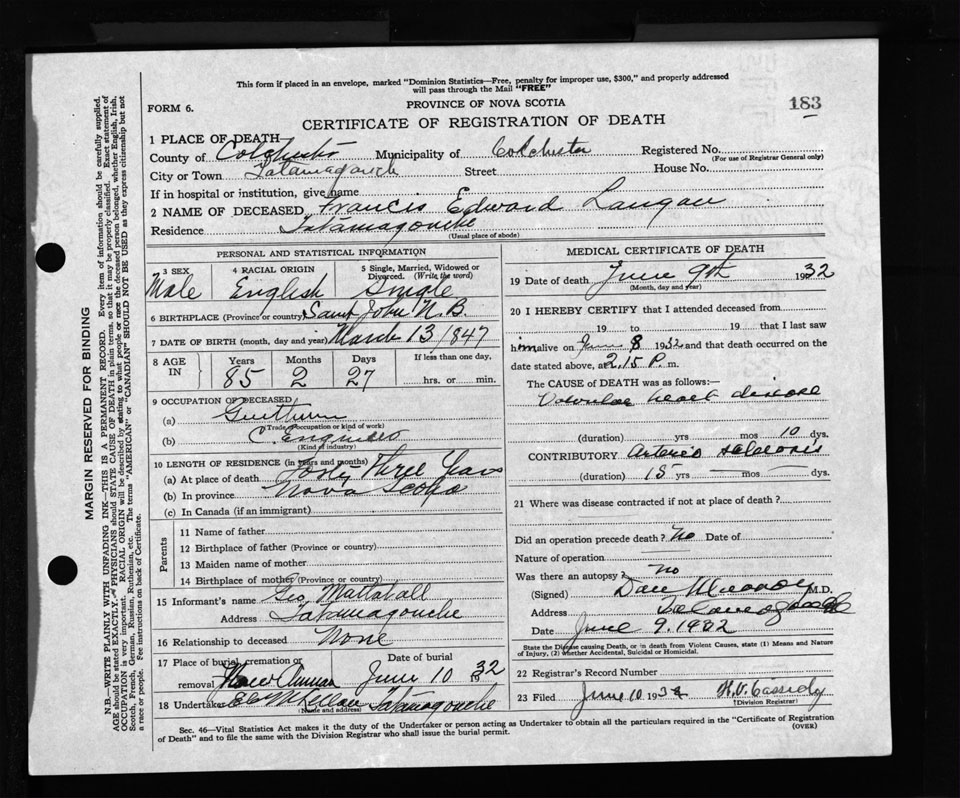 This form if placed in an envelope, marked "Dominion Statistics—Free, penalty for improper use, $300," and properly addressed
will pass through the Mail "FREE"
FORM 6.
PROVINCE OF NOVA SCOTIA
183
CERTIFICATE OF REGISTRATION OF DEATH
1 PLACE OF DEATH
County of Colchester Municipality of Colchester Registered No.
(For use of Registrar General only)
City or Town Tatamagouch Street House No.
If in hospital or institution, give name
2 NAME OF DECEASED Francis Edward Langan
Residence Tatamagouche
(Usual place of abode)
PERSONAL AND STATISTICAL INFORMATION
3 SEX 4 RACIAL ORIGIN 5 Single, Married, Widowed or
Divorced. (Write the word)
Male English Single
6 BIRTHPLACE (Province or country) Saint John N.B.
7 DATE OF BIRTH (month, day and year) March 13/1847
8 AGE IN Years Months Days If less than one day,
85 2 27 hrs. or min.
9 OCCUPATION OF DECEASED
(a) Gentleman
(Trade, occupation or kind of work)
(b) C. Engineer
(Kind of industry)
10 LENGTH OF RESIDENCE (in years and months)
(a) At place of death Forty Three Years
(b) In province Nova Scotia
(c) In Canada (if an immigrant)
Parents
11 Name of father
12 Birthplace of father (Province or country)
13 Maiden name of mother
14 Birthplace of mother (Province or country)
15 Informant's name Geo. Mattatall
Address Tatamagouche
16 Relationship to deceased None
17 Place of burial, cremation or Date of burial
removal June 10 32
18 Undertaker Tatamagouche
(Name and address)
MEDICAL CERTIFICATE OF DEATH
19 Date of death June 9th 1932
(Month, day and year)
20 I HEREBY CERTIFY that I attended deceased from
19 to 19 that I last saw
him alive on June 8 1932 and that death occurred on the
date stated above, at 2.15 P. m.
The CAUSE OF DEATH was as follows:—
Valvular heart disease
(duration) yrs mos 10 dys.
CONTRIBUTORY Arterio Sclerosis
(duration) 15 yrs mos dys.
21 Where was disease contracted if not at place of death?
Did an operation precede death? No Date of
Nature of operation
Was there an autopsy? No
(Signed) Dan Murray M.D.
Address Tatamagouche
Date June 9. 1932
State the Disease causing Death, or in death from Violent Causes, state (1) Means and Nature
of Injury, (2) whether Accidental, Suicidal or Homicidal.
22 Registrar's Record Number
23 Filed June 10 1932 Cassidy
(Division Registrar)
Sec. 46—Vital Statistics Act makes it the duty of the Undertaker or person acting as Undertaker to obtain all the particulars required in the "Certificate of Registration
of Death" and to file the same with the Division Registrar who shall issue the burial permit.
(OVER)
MARGIN RESERVED FOR BINDING
N.B.—WRITE PLAINLY WITH UNFADING INK—THIS IS A PERMANENT RECORD. Every item of information should be carefully supplied.
AGE should be stated EXACTLY. PHYSICIANS should STATE CAUSE OF DEATH in plain terms, so that it may be properly classified. Exact statement of
OCCUPATION is very important. RACIAL ORIGIN will be described by stating to what people or race the deceased person belonged, whether English, Irish,
Scotch, French, German, Russian, Ruthenian, etc. The terms "AMERICAN" or "CANADIAN" SHOULD NOT BE USED as they express citizenship but not
a race or people. See instructions on back of Certificate.